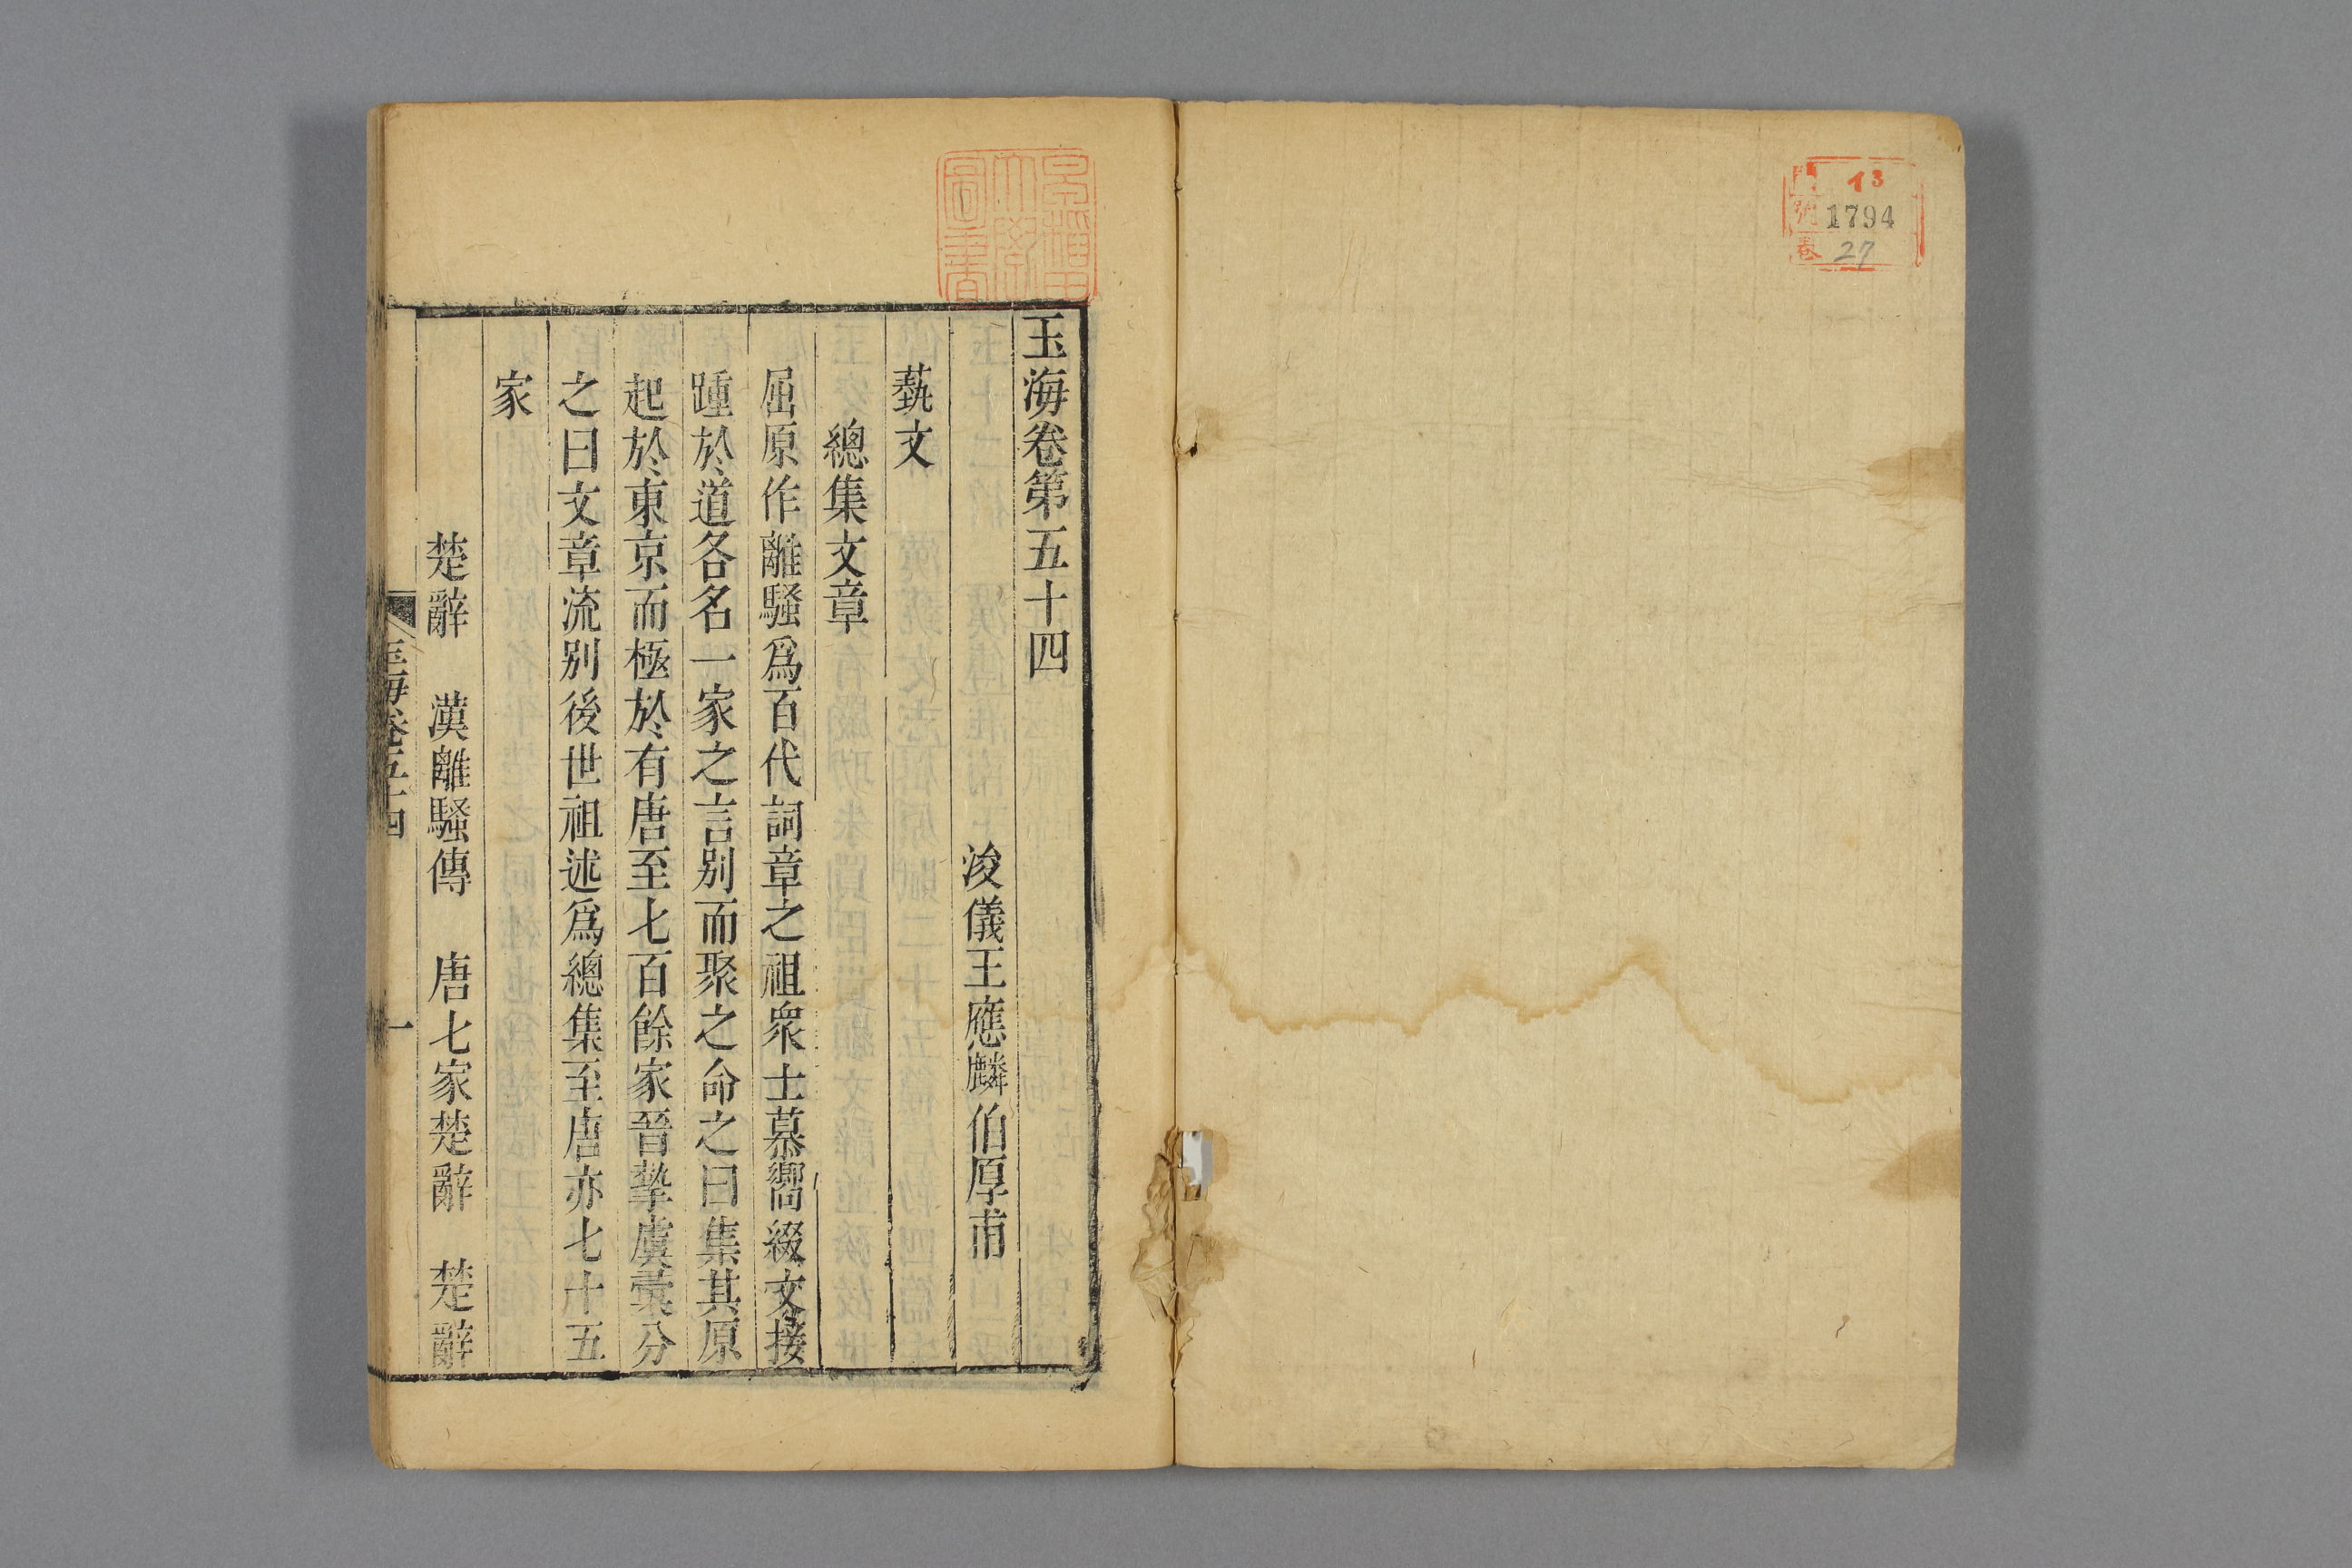 門 イ3
號 1794
卷 27
早稲田大學圖書
玉海卷第五十四
浚儀王應麟伯厚甫
藝文
總集文章
屈原作離騷爲百代詞章之祖衆士慕嚮綴文接
踵於道各名一家之言别而聚之命之曰集其原
起於東京而極於有唐至七百餘家晉摯虞彙分
之曰文章流别後世祖述爲總集至唐亦七十五
家
楚辭 漢離騷傳 唐七家楚辭 楚辭
玉海卷五十四 一